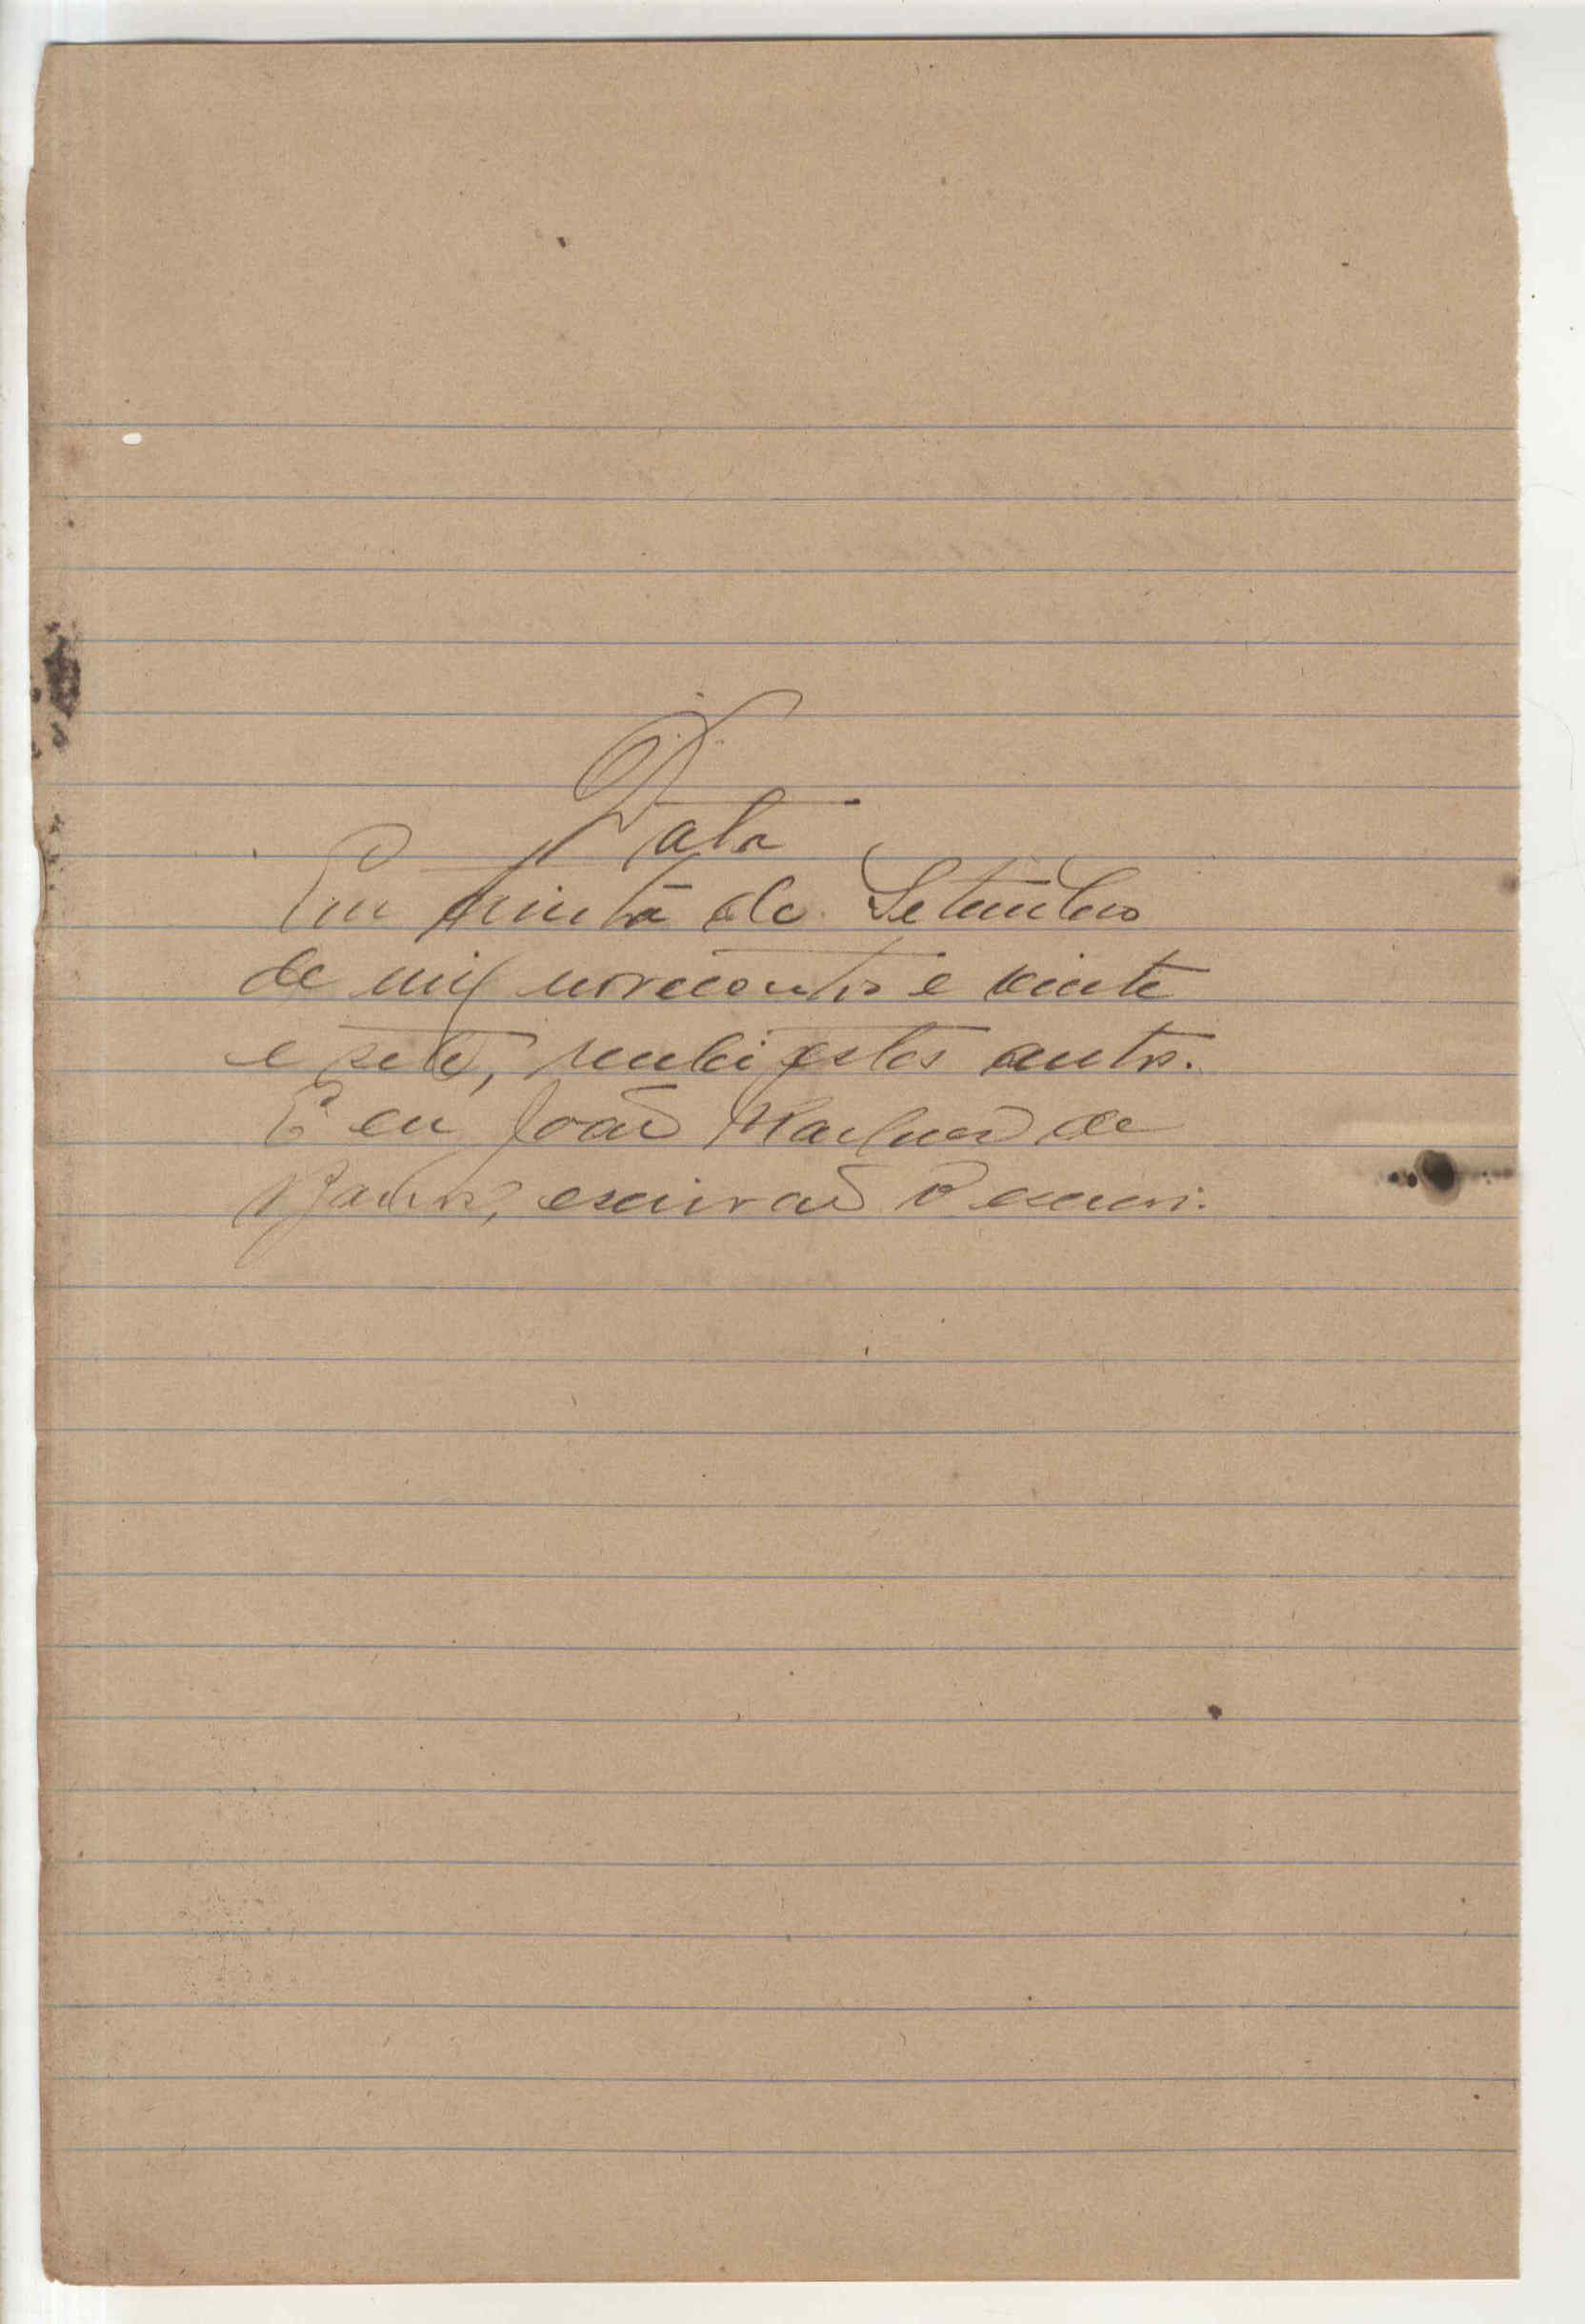 Data
Em trinta de Setembro
de mil novecentos e vinte
e sete, recebi estes autos.
E eu João de
Barros, escrivão o escrevi.